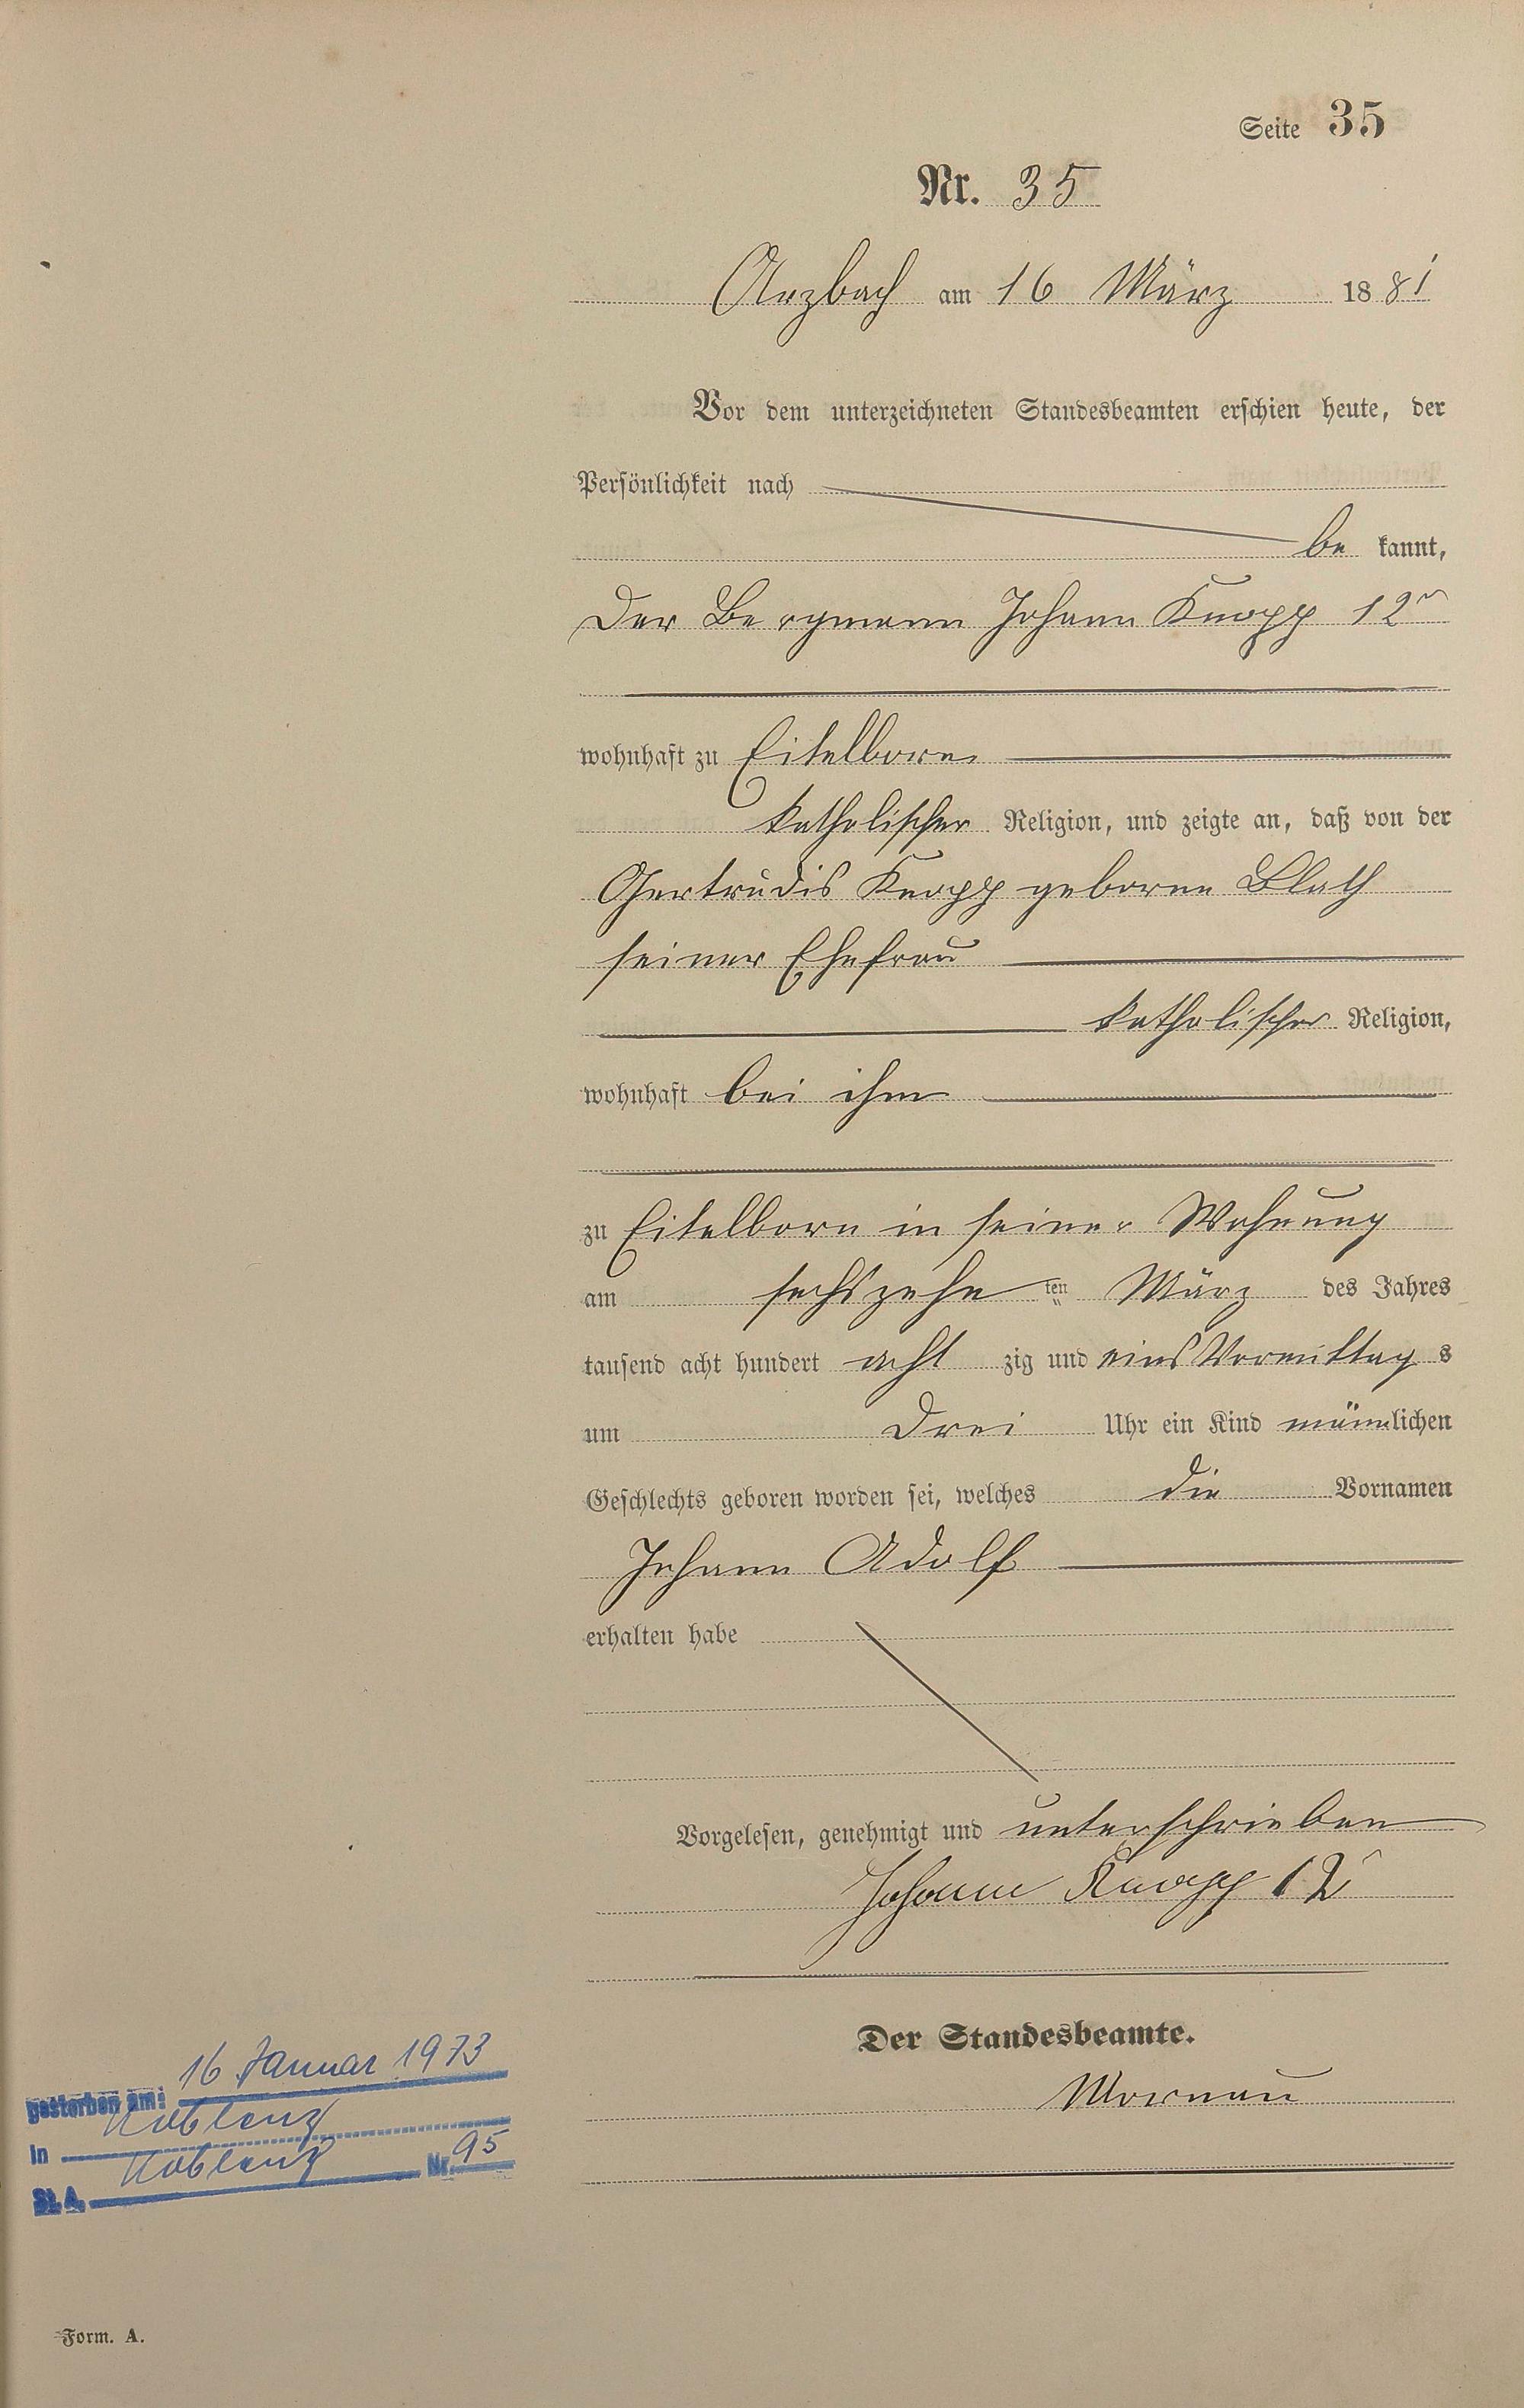 Seite 35
Nr. 35
Arzbach am 16 März 1881
Vor dem unterzeichneten Standesbeamten erschien heute, der
Persönlichkeit nach
be kannt,
der Bergmann Johann Knopp 12r
wohnhaft zu Eitelborn
katholischer Religion, und zeigte an, daß von der
Gertrudis Knopp geborene Blath
seiner Ehefrau
katholischer Religion,
wohnhaft bei ihm
zu Eitelborn in seiner Wohnung
am sechszehn ten März des Jahres
tausend acht hundert acht zig und eins Vormittag s
um drei Uhr ein Kind männlichen
Geschlechts geboren worden sei, welches die Vornamen
Johann Adolf
erhalten habe
Vorgelesen, genehmigt und unterschrieben
Johann Knopp 12r
Der Standesbeamte.
gestorben am: 16 Januar 1973
in Koblenz
St. A. Koblenz Nr. 95
Form. A.